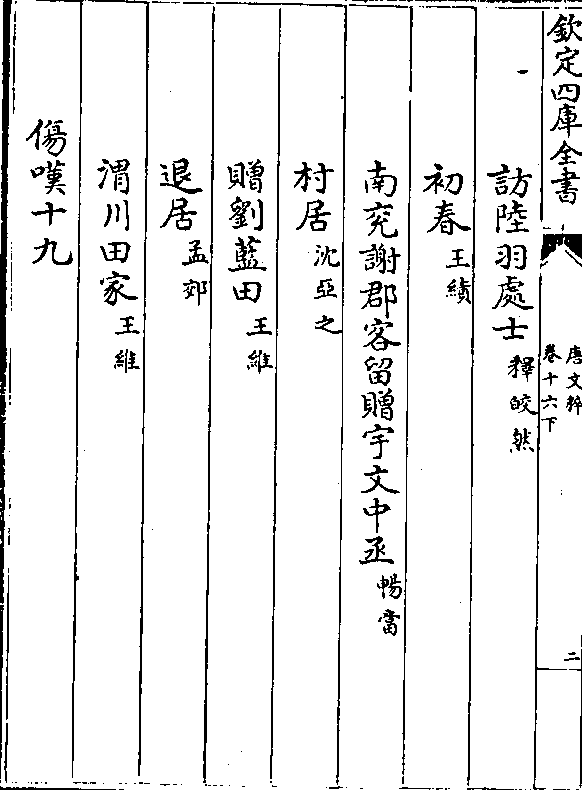 欽定四庫全書
唐文粹
卷十六下
二
訪陸羽處士 釋皎然
初春 王績
南兖謝郡客留贈宇文中丞 暢當
村居 沈亞之
贈劉藍田 王維
退居 孟郊
渭川田家 王維
傷嘆十九